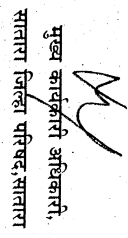 मुख्य कार्यकारी अधिकारी,
सातारा जिल्हा परिषद,सातारा